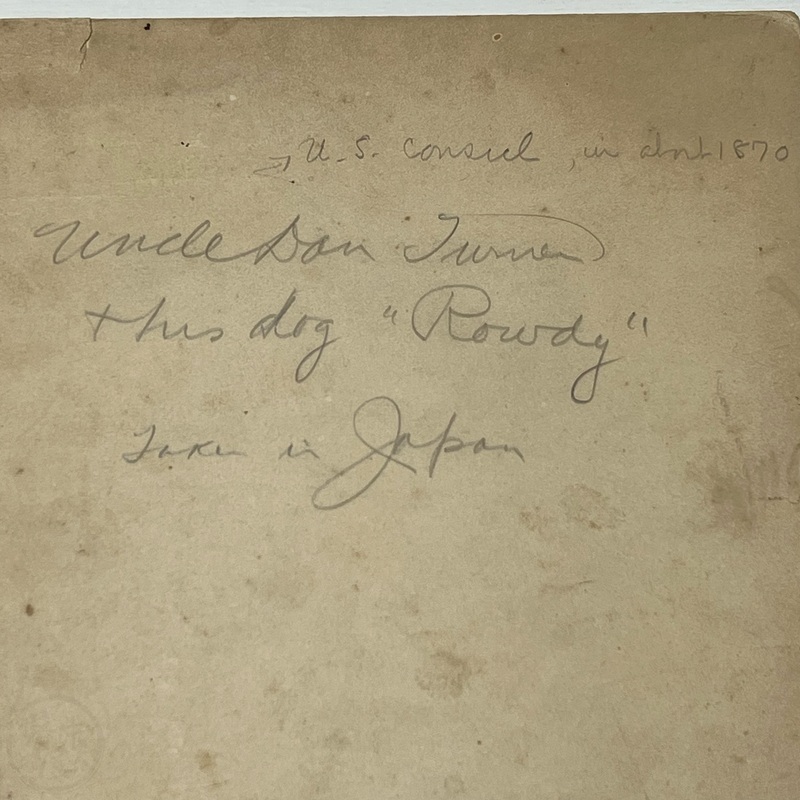 U.S. Consul, in about 1870
Uncle Dan Turner
+ his dog "Rowdy"
Taken in Japan